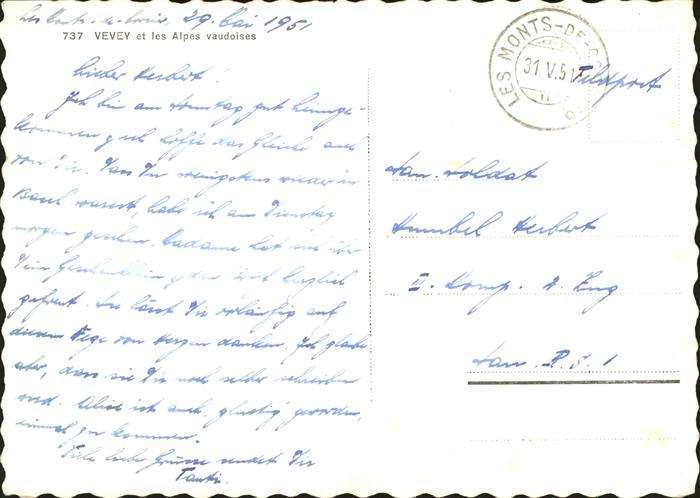 Les Monts-de-Corsier, 29. Mai 1951
737 VEVEY et les Alpes vaudoises
Lieber Herbert!
Ich bin am Sonntag gut heimge-
kommen & ich hoffe das Gleiche auch
von Dir. Dass Du wenigstens wieder in
Basel warest, habe ich am Dienstag
morgen gesehen. Madame hat sich über
Dein Geschenklein & den Brief herzlich
gefreut. Sie lässt Dir vorläufig auf
diesem Wege von Herzen danken. Ich glaube
aber, dass sie Dir noch selber schreiben
wird. Alice ist auch glustig geworden,
einmal zu kommen.
Viele liebe Grüsse sendet Dir
Tanti.
LES MONTS-DE-
31 V. 51
Feldpost
San. Soldat
Herbert
II. Komp. 2. Zug
San. R.S. 1